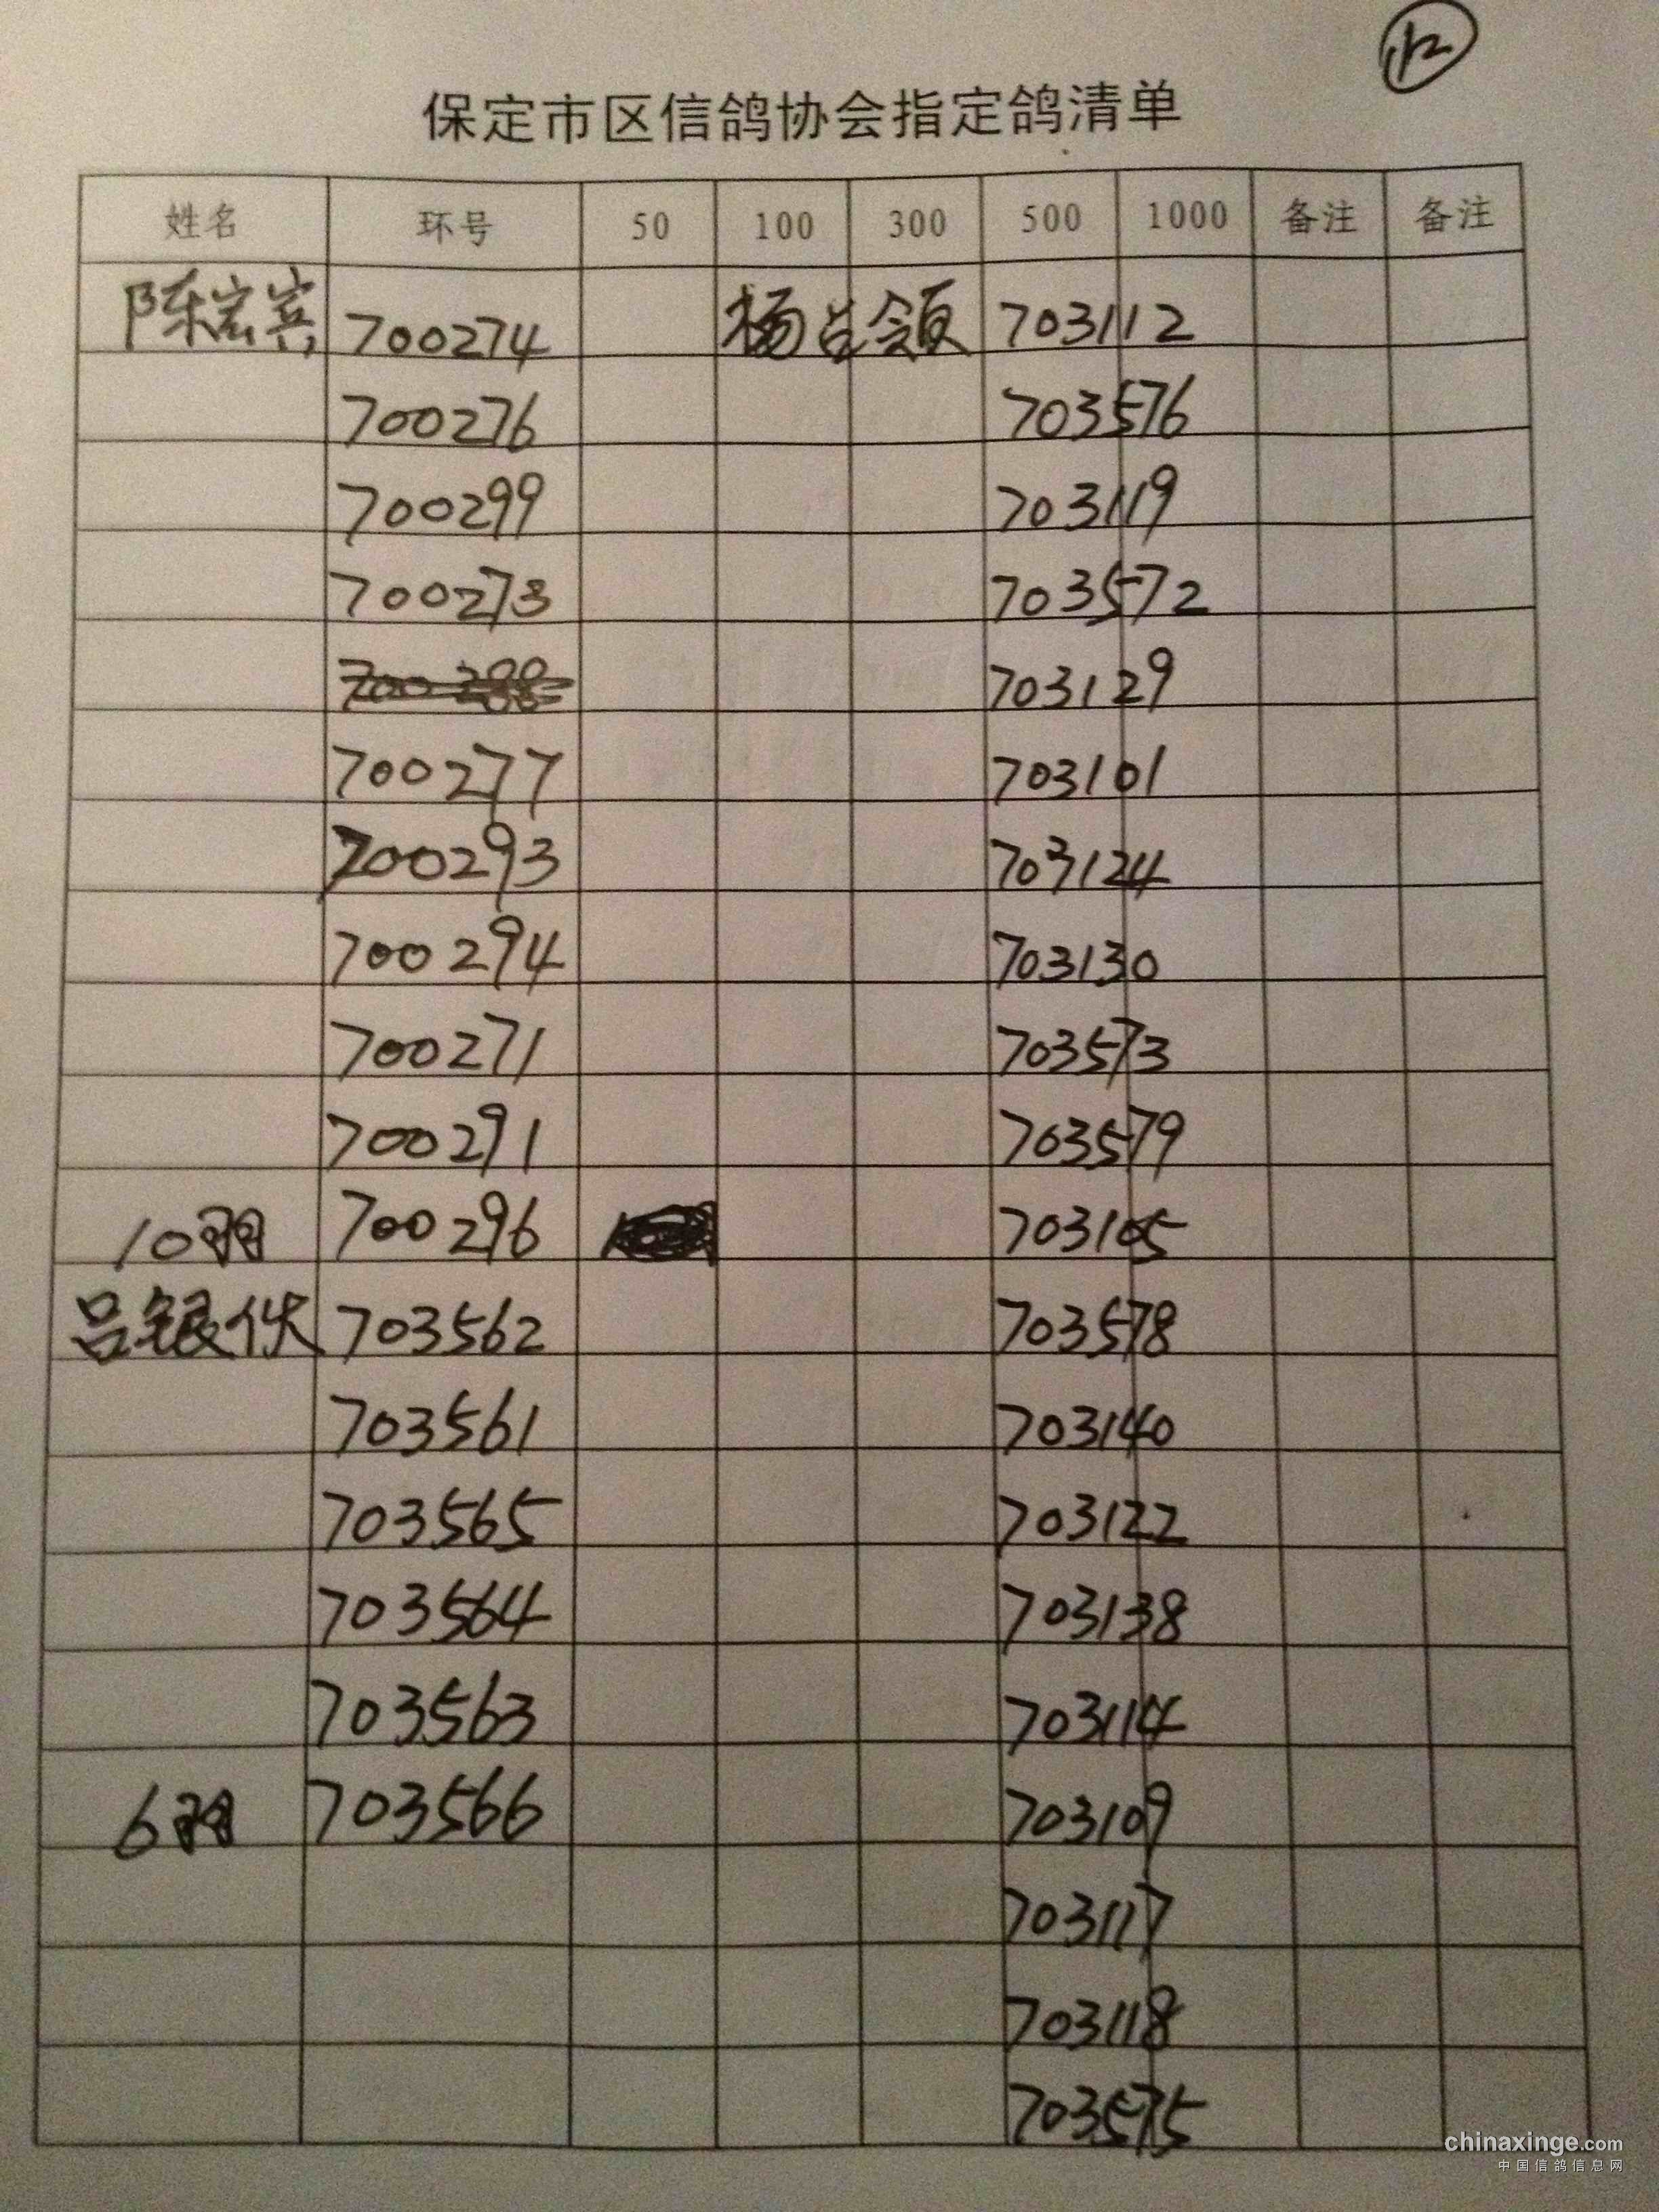 12
保定市区信鸽协会指定鸽清单
姓名 环号 50 100 300 500 1000 备注 备注
陈宏宾 700274 杨占领 703112
700276 703576
700299 703119
700273 703572
703129
700277 703101
700293 703124
700294 703130
700271 703573
700291 703579
10羽 700296 703105
吕银伏 703562 703578
703561 703140
703565 703122
703564 703138
703563 703114
6羽 703566 703109
703117
703118
703575
chinaxinge.com
中国信鸽信息网